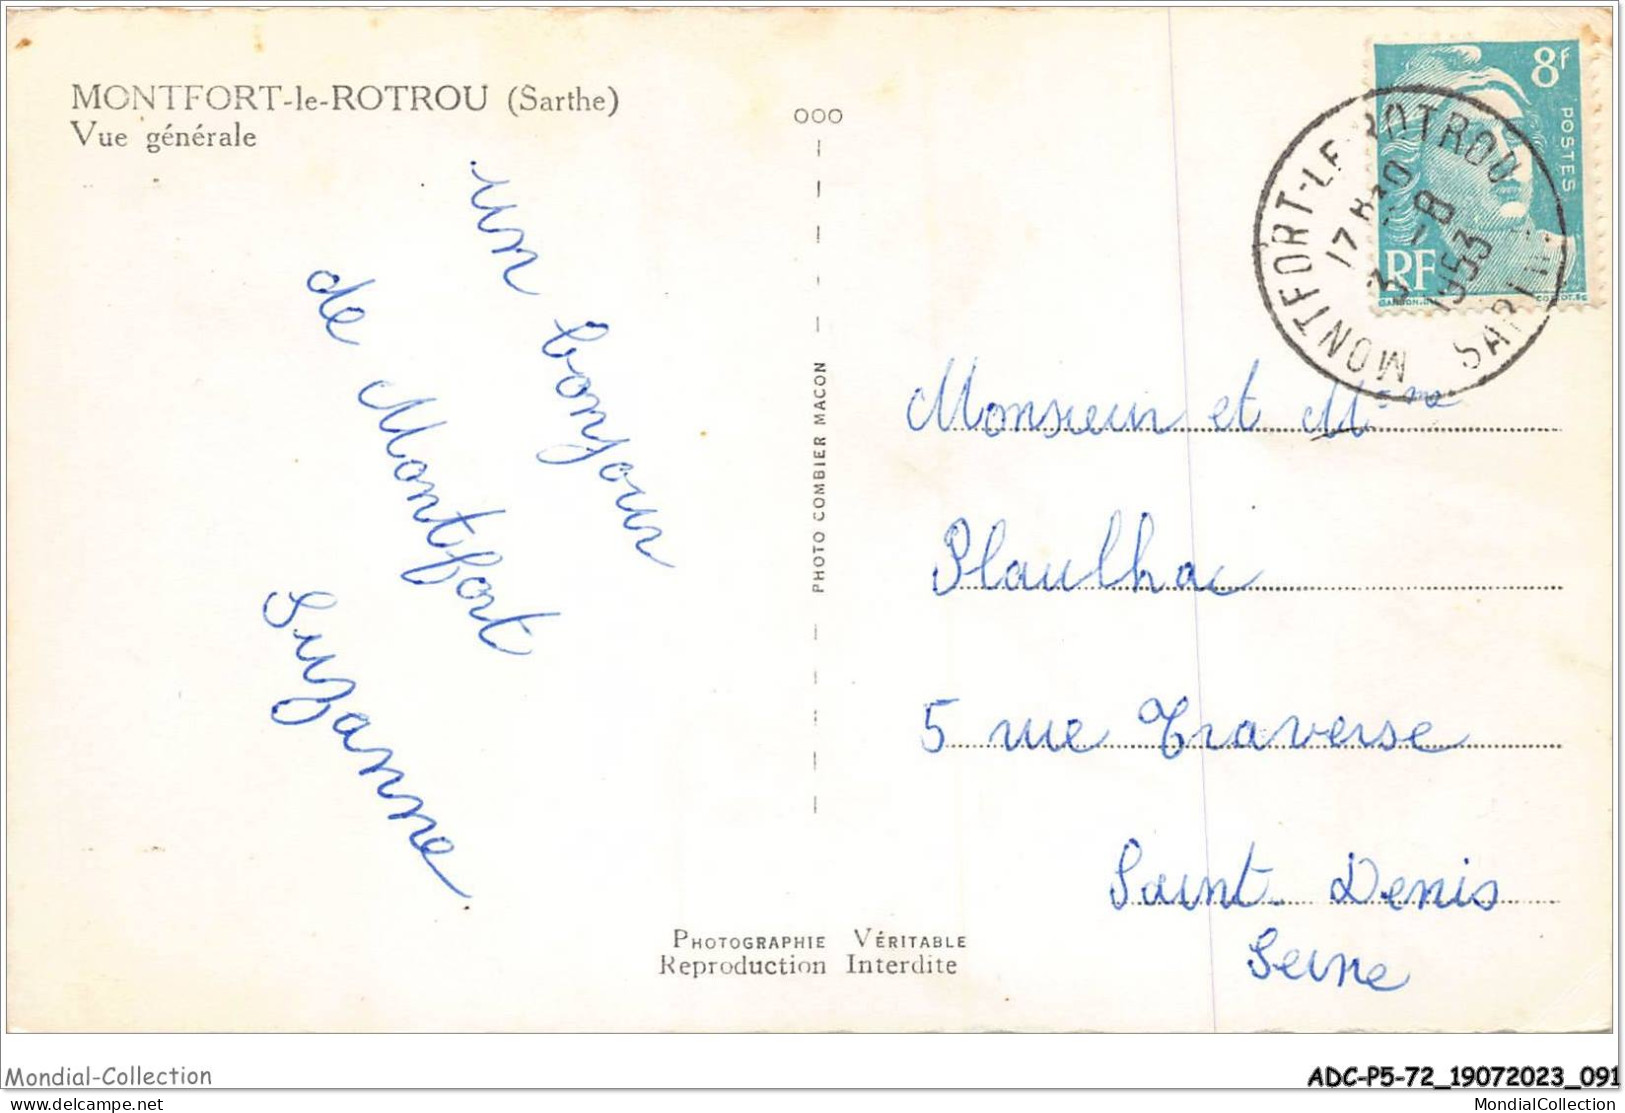 MONTFORT-le-ROTROU (Sarthe)
Vue générale
un bonjour
de Montfort
Suzanne
OOO
PHOTO COMBIER MACON
8F
POSTES
RF
MONTFORT-LE-ROTROU
17 H30
3 -8
1953
SARTHE
Monsieur et Mme
Plaulhac
5 rue Traverse
Saint-Denis
Seine
PHOTOGRAPHIE VÉRITABLE
Reproduction Interdite
Mondial-Collection
ADC-P5-72_19072023_091
www.delcampe.net
MondialCollection